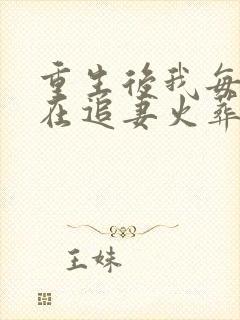 重生後我每
在追妻火葬
王妹